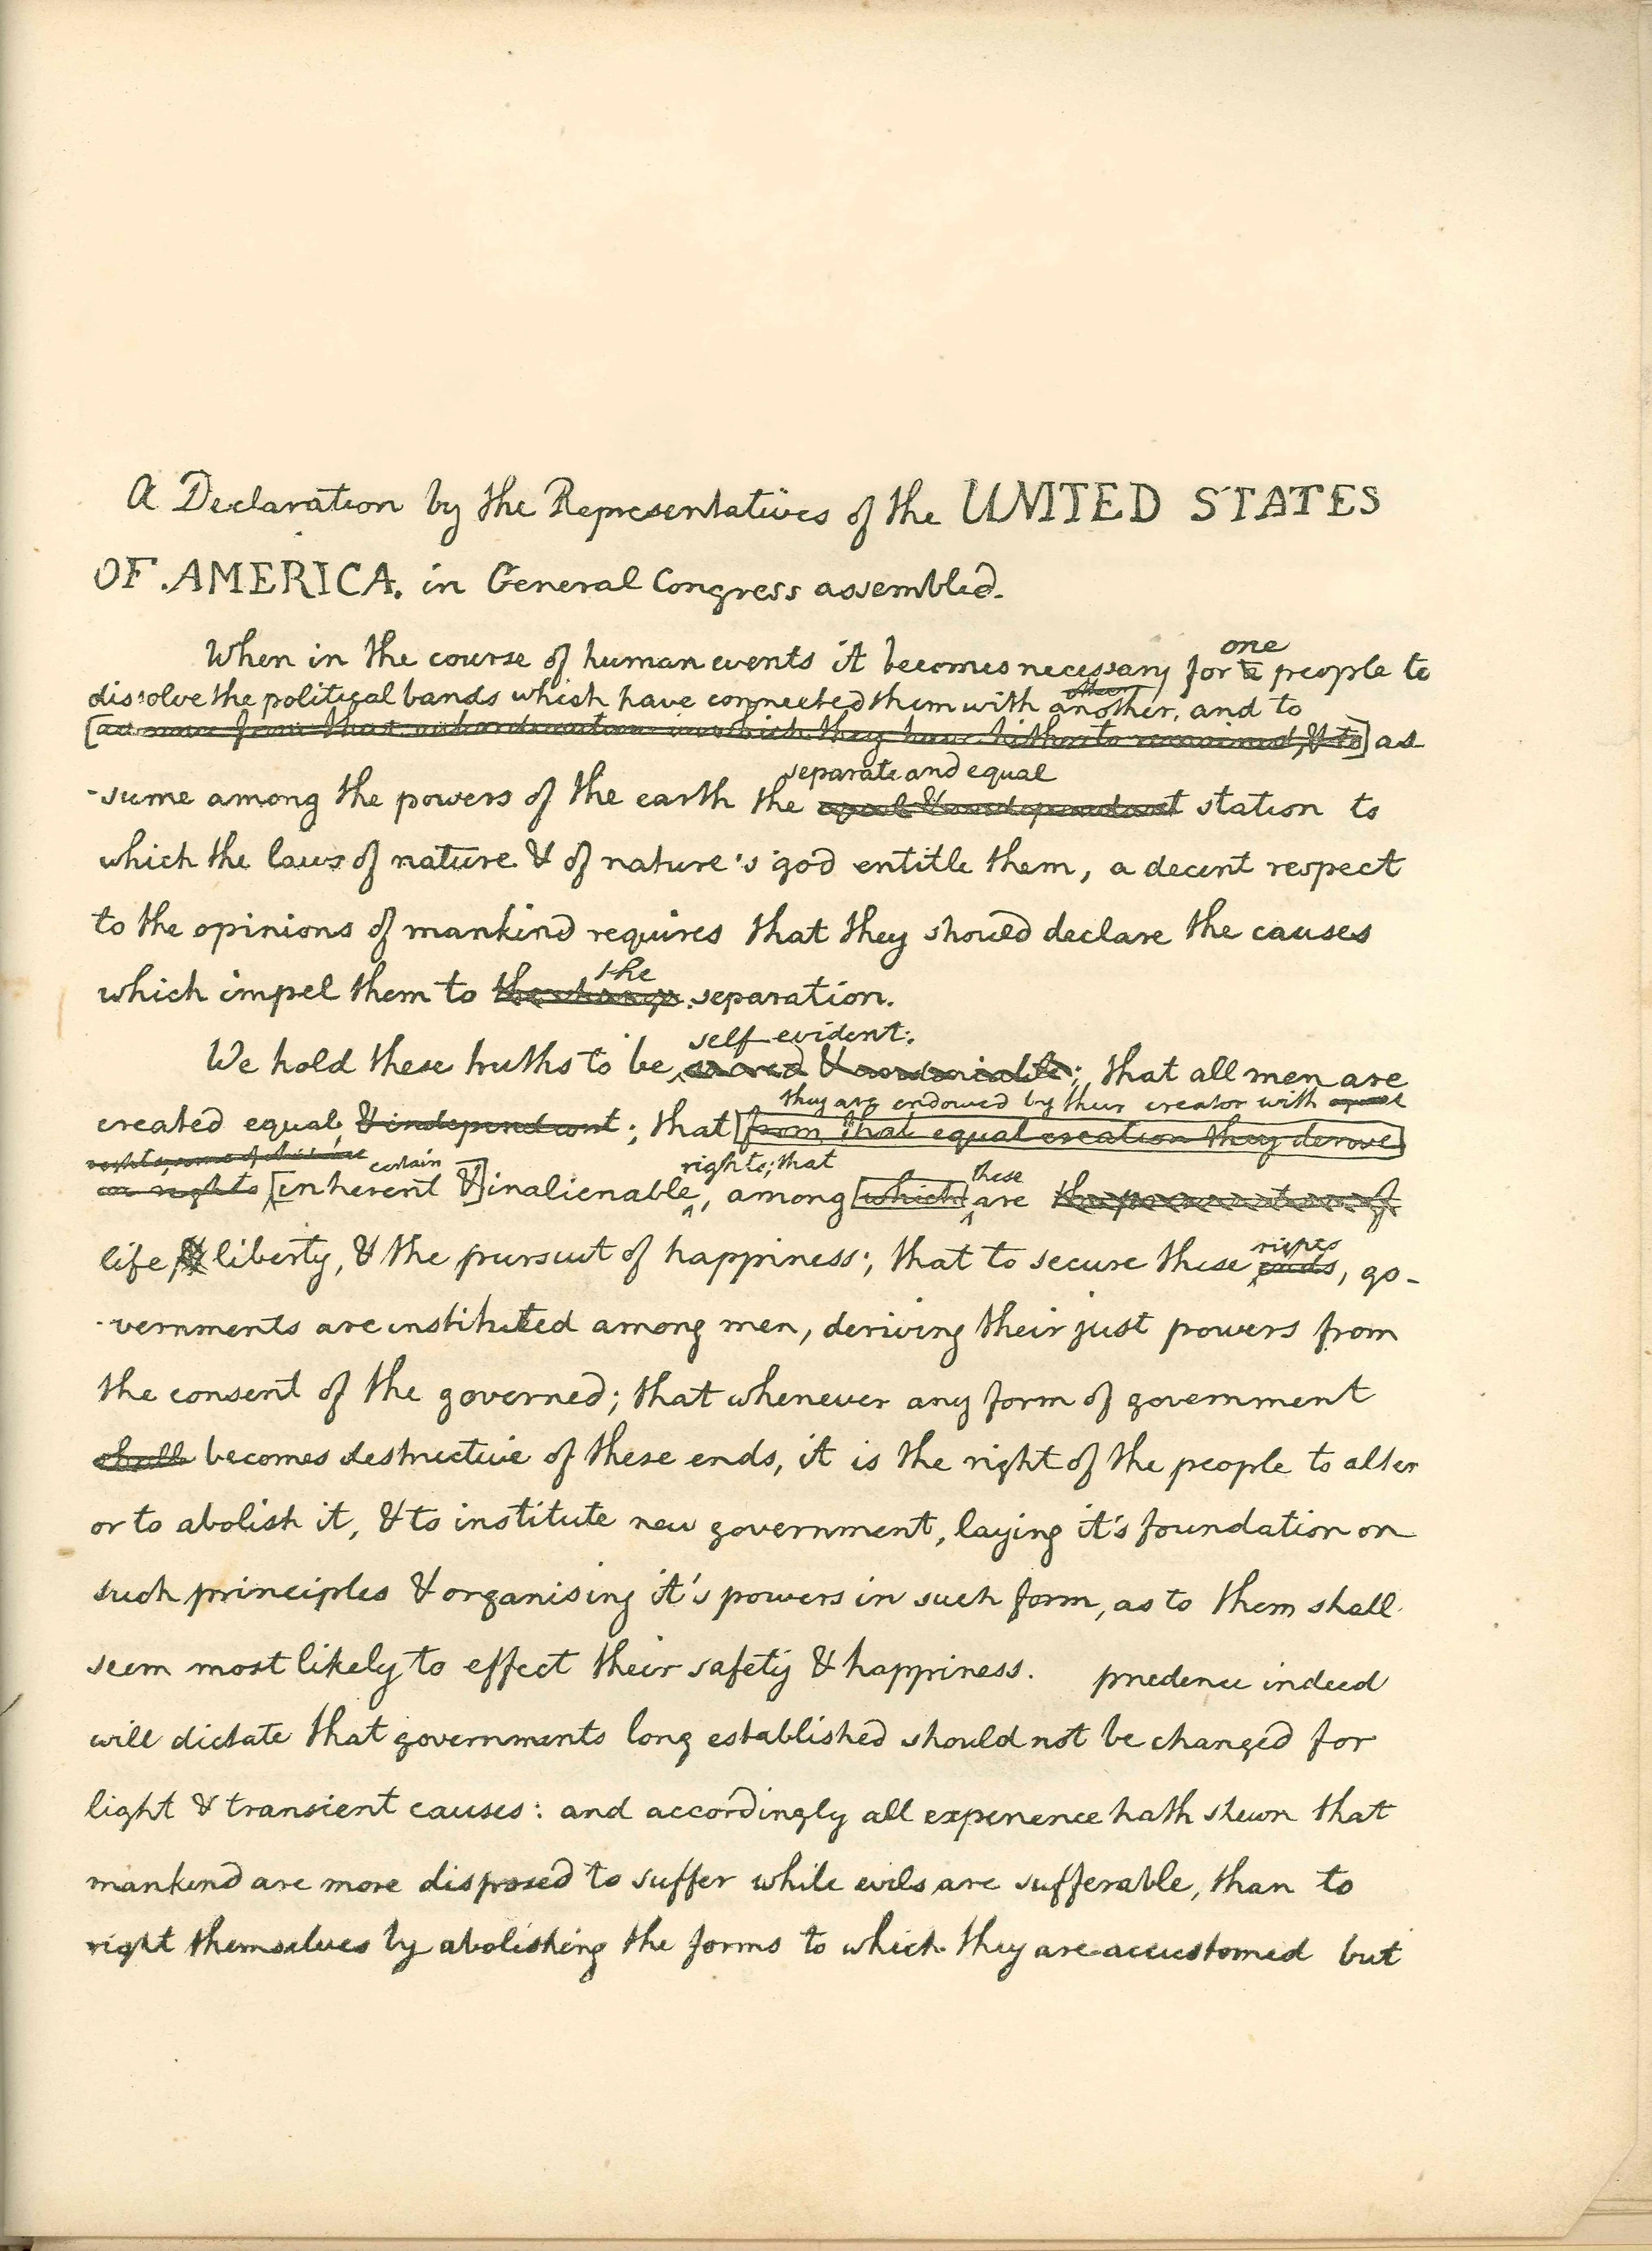 A Declaration by the Representatives of the UNITED STATES
OF AMERICA. in General Congress assembled.
one
When in the course of human events it becomes necessary for a people to
dissolve the political bands which have connected them with another, and to
[as- sume from that subordination in which they have hitherto remained, & to] as
separate and equal
-sume among the powers of the earth the equal & independant station to
which the laws of nature & of nature's god entitle them, a decent respect
to the opinions of mankind requires that they should declare the causes
the
which impel them to the change separation.
self-evident;
We hold these truths to be sacred & undeniable; that all men are
they are endowed by their creator with
created equal, & independant; that [from that equal creation they derive]
rights, some of which are certain rights; that these
[inherent &] inalienable, among [which] are the preservation of
rights
life, & liberty, & the pursuit of happiness; that to secure these ends, go-
-vernments are instituted among men, deriving their just powers from
the consent of the governed; that whenever any form of government
shall becomes destructive of these ends, it is the right of the people to alter
or to abolish it, & to institute new government, laying it's foundation on
such principles & organising it's powers in such form, as to them shall
seem most likely to effect their safety & happiness. prudence indeed
will dictate that governments long established should not be changed for
light & transient causes: and accordingly all experience hath shewn that
mankind are more disposed to suffer while evils are sufferable, than to
right themselves by abolishing the forms to which they are accustomed but